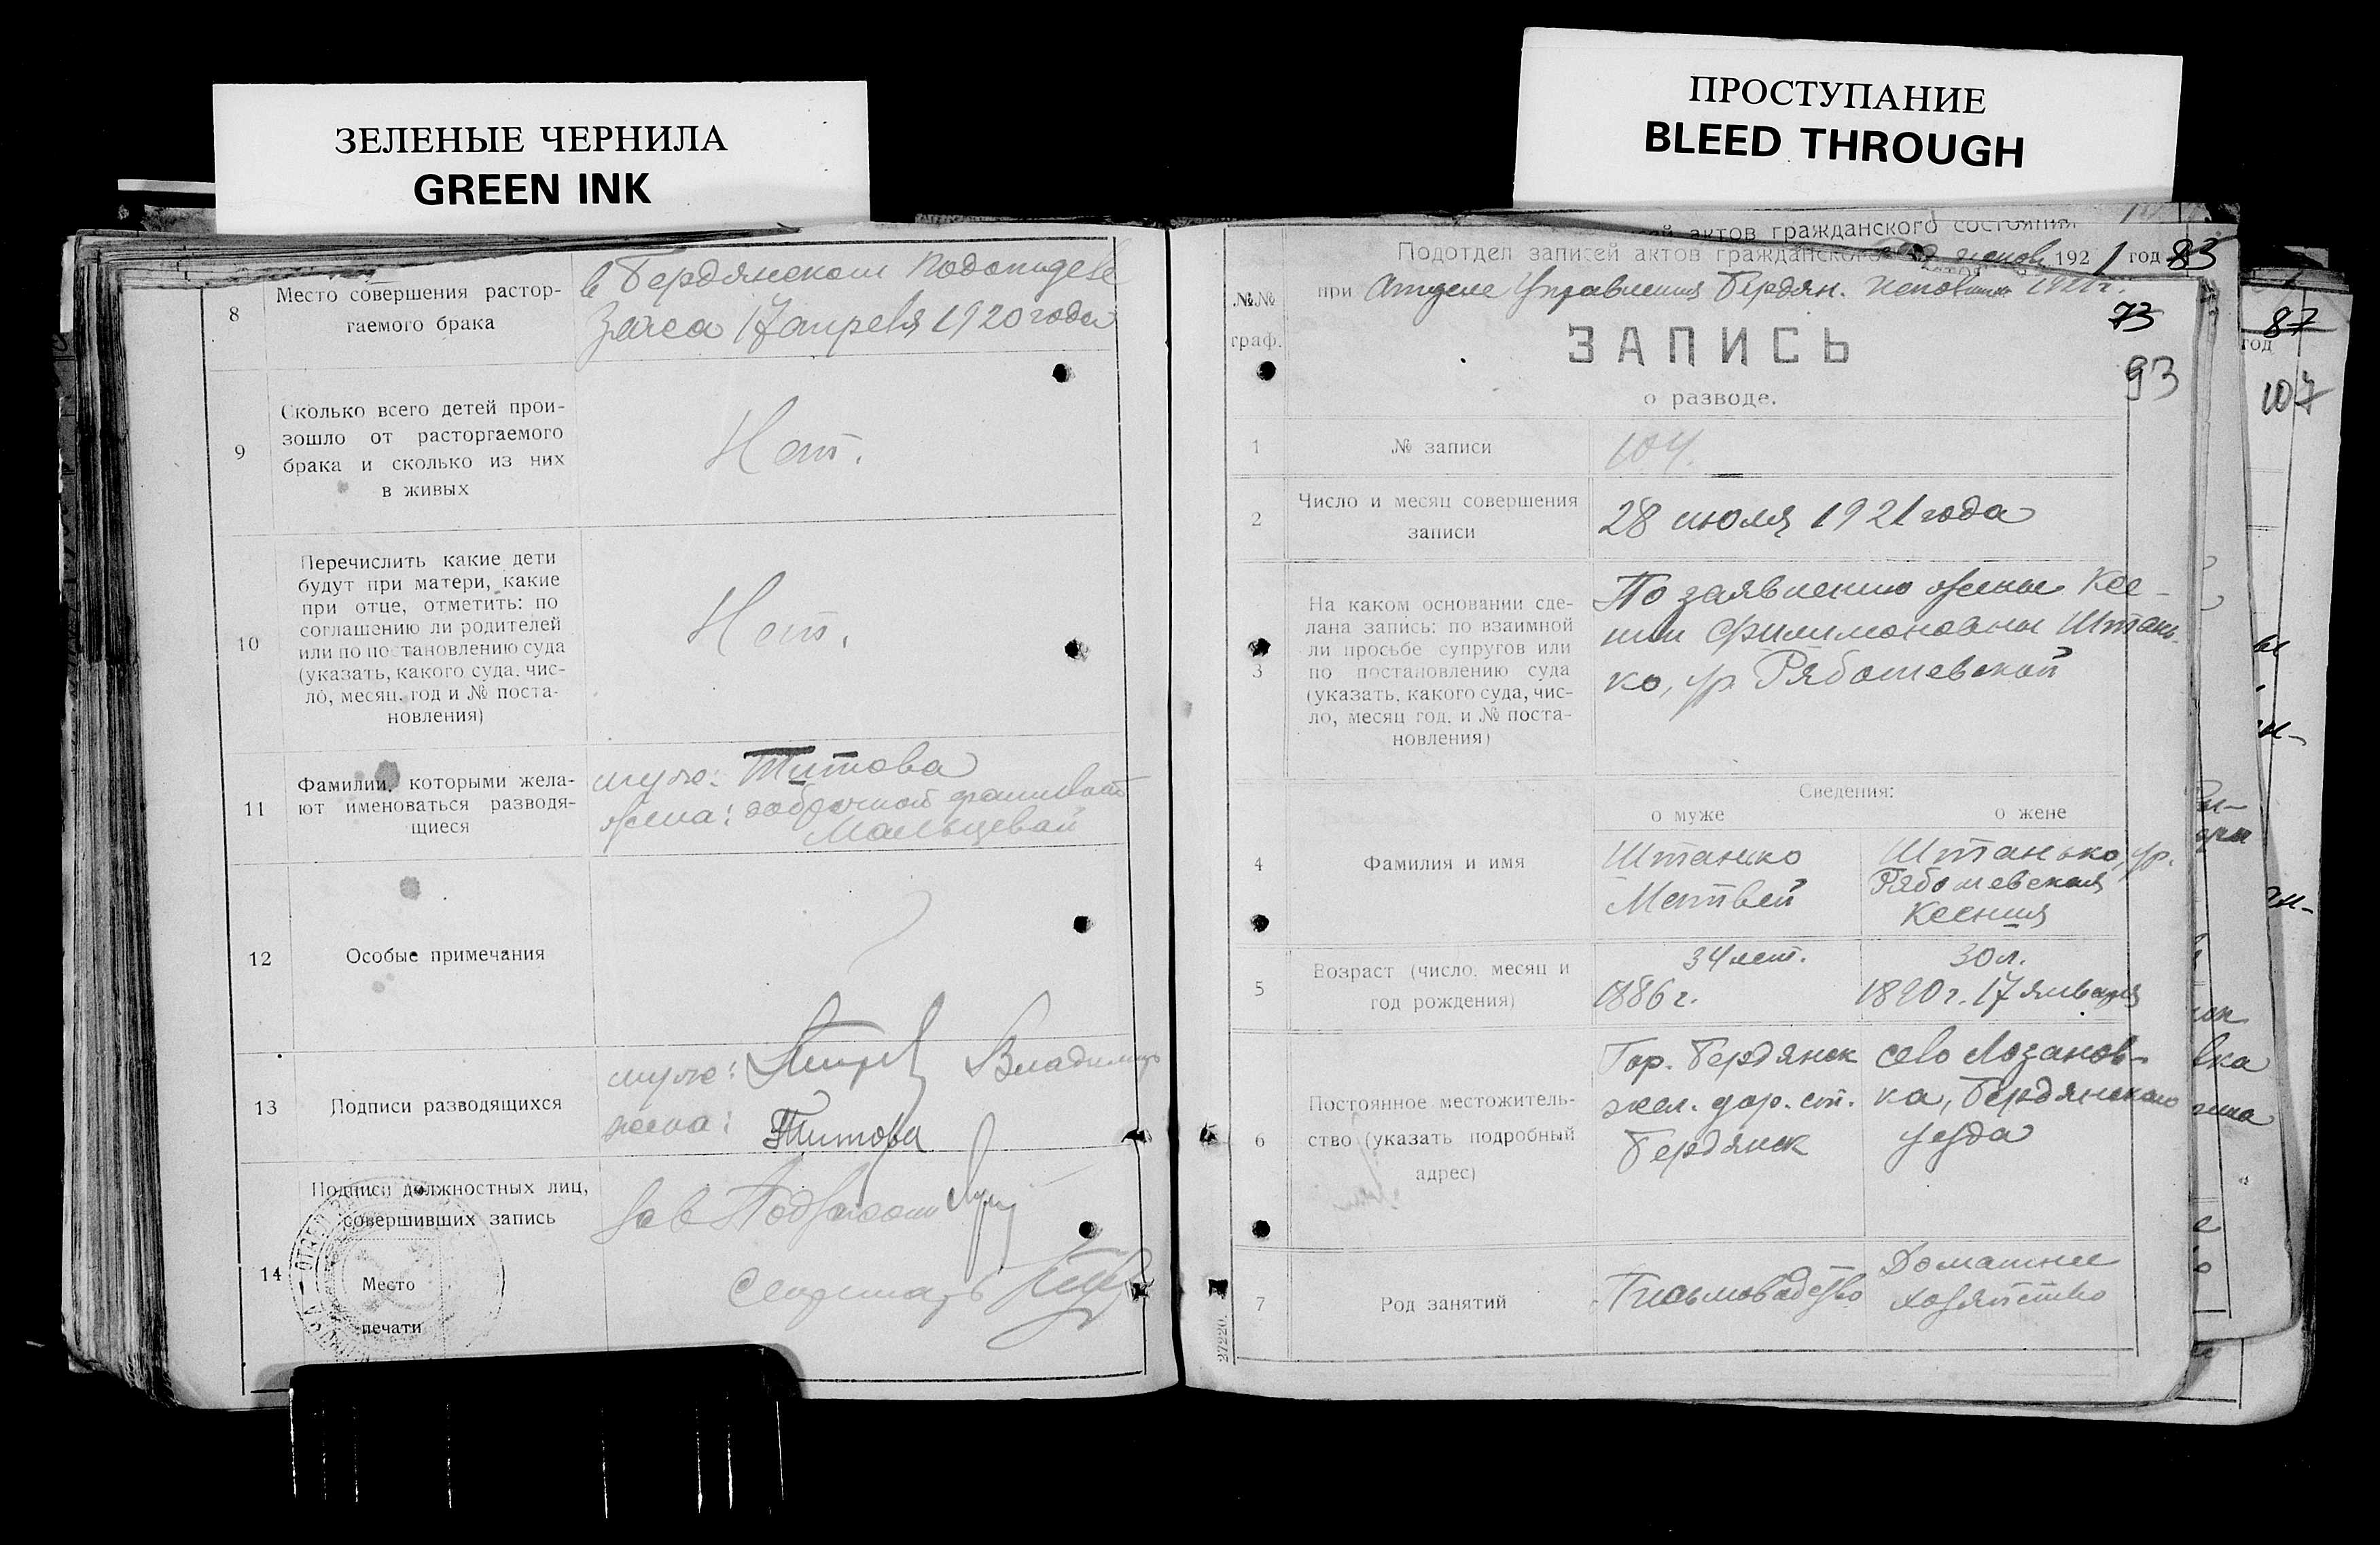 ЗЕЛЕНЫЕ ЧЕРНИЛА
GREEN INK
ПРОСТУПАНИЕ
BLEED THROUGH
8
Место совершения растор-
гаемого брака
в Бердянском Подотделе
Загса 17 апреля 1920 года
9
Сколько всего детей прои-
зошло от расторгаемого
брака и сколько из них
в живых
Нет.
10
Перечислить какие дети
будут при матери, какие
при отце, отметить: по
соглашению ли родителей
или по постановлению суда
(указать, какого суда, чис-
ло, месяц, год и № поста-
новления)
Нет.
11
Фамилии, которыми жела-
ют именоваться разводя-
щиеся
муж: Титова
жена: добрачной фамилией
Мальцевой
12
Особые примечания
13
Подписи разводящихся
муж: Владимир
жена: Титова
14
Подписи должностных лиц,
совершивших запись
Место
печати
Зав
Секретарь
актов гражданского состояния
192 1 год 83
Подотдел записей актов гражданского
№№
граф.
при Отделе Управления Бердян. 1921 г.
73
93
ЗАПИСЬ
о разводе.
1
№ записи
104.
2
Число и месяц совершения
записи
28 июля 1921 года
3
На каком основании сде-
лана запись: по взаимной
ли просьбе супругов или
по постановлению суда
(указать, какого суда, чис-
ло, месяц год, и № поста-
новления)
По заявлению жены Ксе-
нии Филимоновны Штань-
ко, ур. Рябошевской
Сведения:
о муже
о жене
4
Фамилия и имя
Штанько
Матвей
Штанько, ур.
Рябошевская
Ксения
5
Возраст (число, месяц и
год рождения)
34 лет.
1886 г.
30 л.
1890 г. 17 января
6
Постоянное местожитель-
ство (указать подробный
адрес)
Гор. Бердянск
жел. дор. ст.
Бердянск
село Лозанов-
ка, Бердянского
уезда
7
Род занятий
Письмоводство
Домашнее
хозяйство
27220.
87
год
107